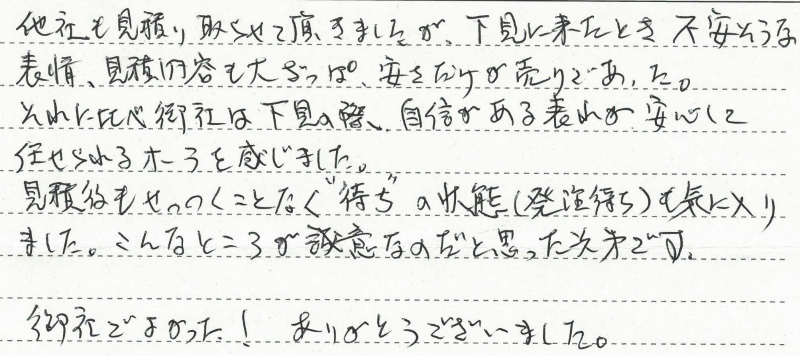 他社も見積り取らせて頂きましたが、下見に来たとき不安そうな
表情、見積内容も大ざっぱ、安さだけが売りであった。
それに比べ御社は下見の際、自信がある表れか安心して
任せられるオーラを感じました。
見積後もせっつくことなく“待ち”の状態(発注待ち)も気に入り
ました。こんなところが誠意なのだと思った次第です。
御社でよかった! ありがとうございました。